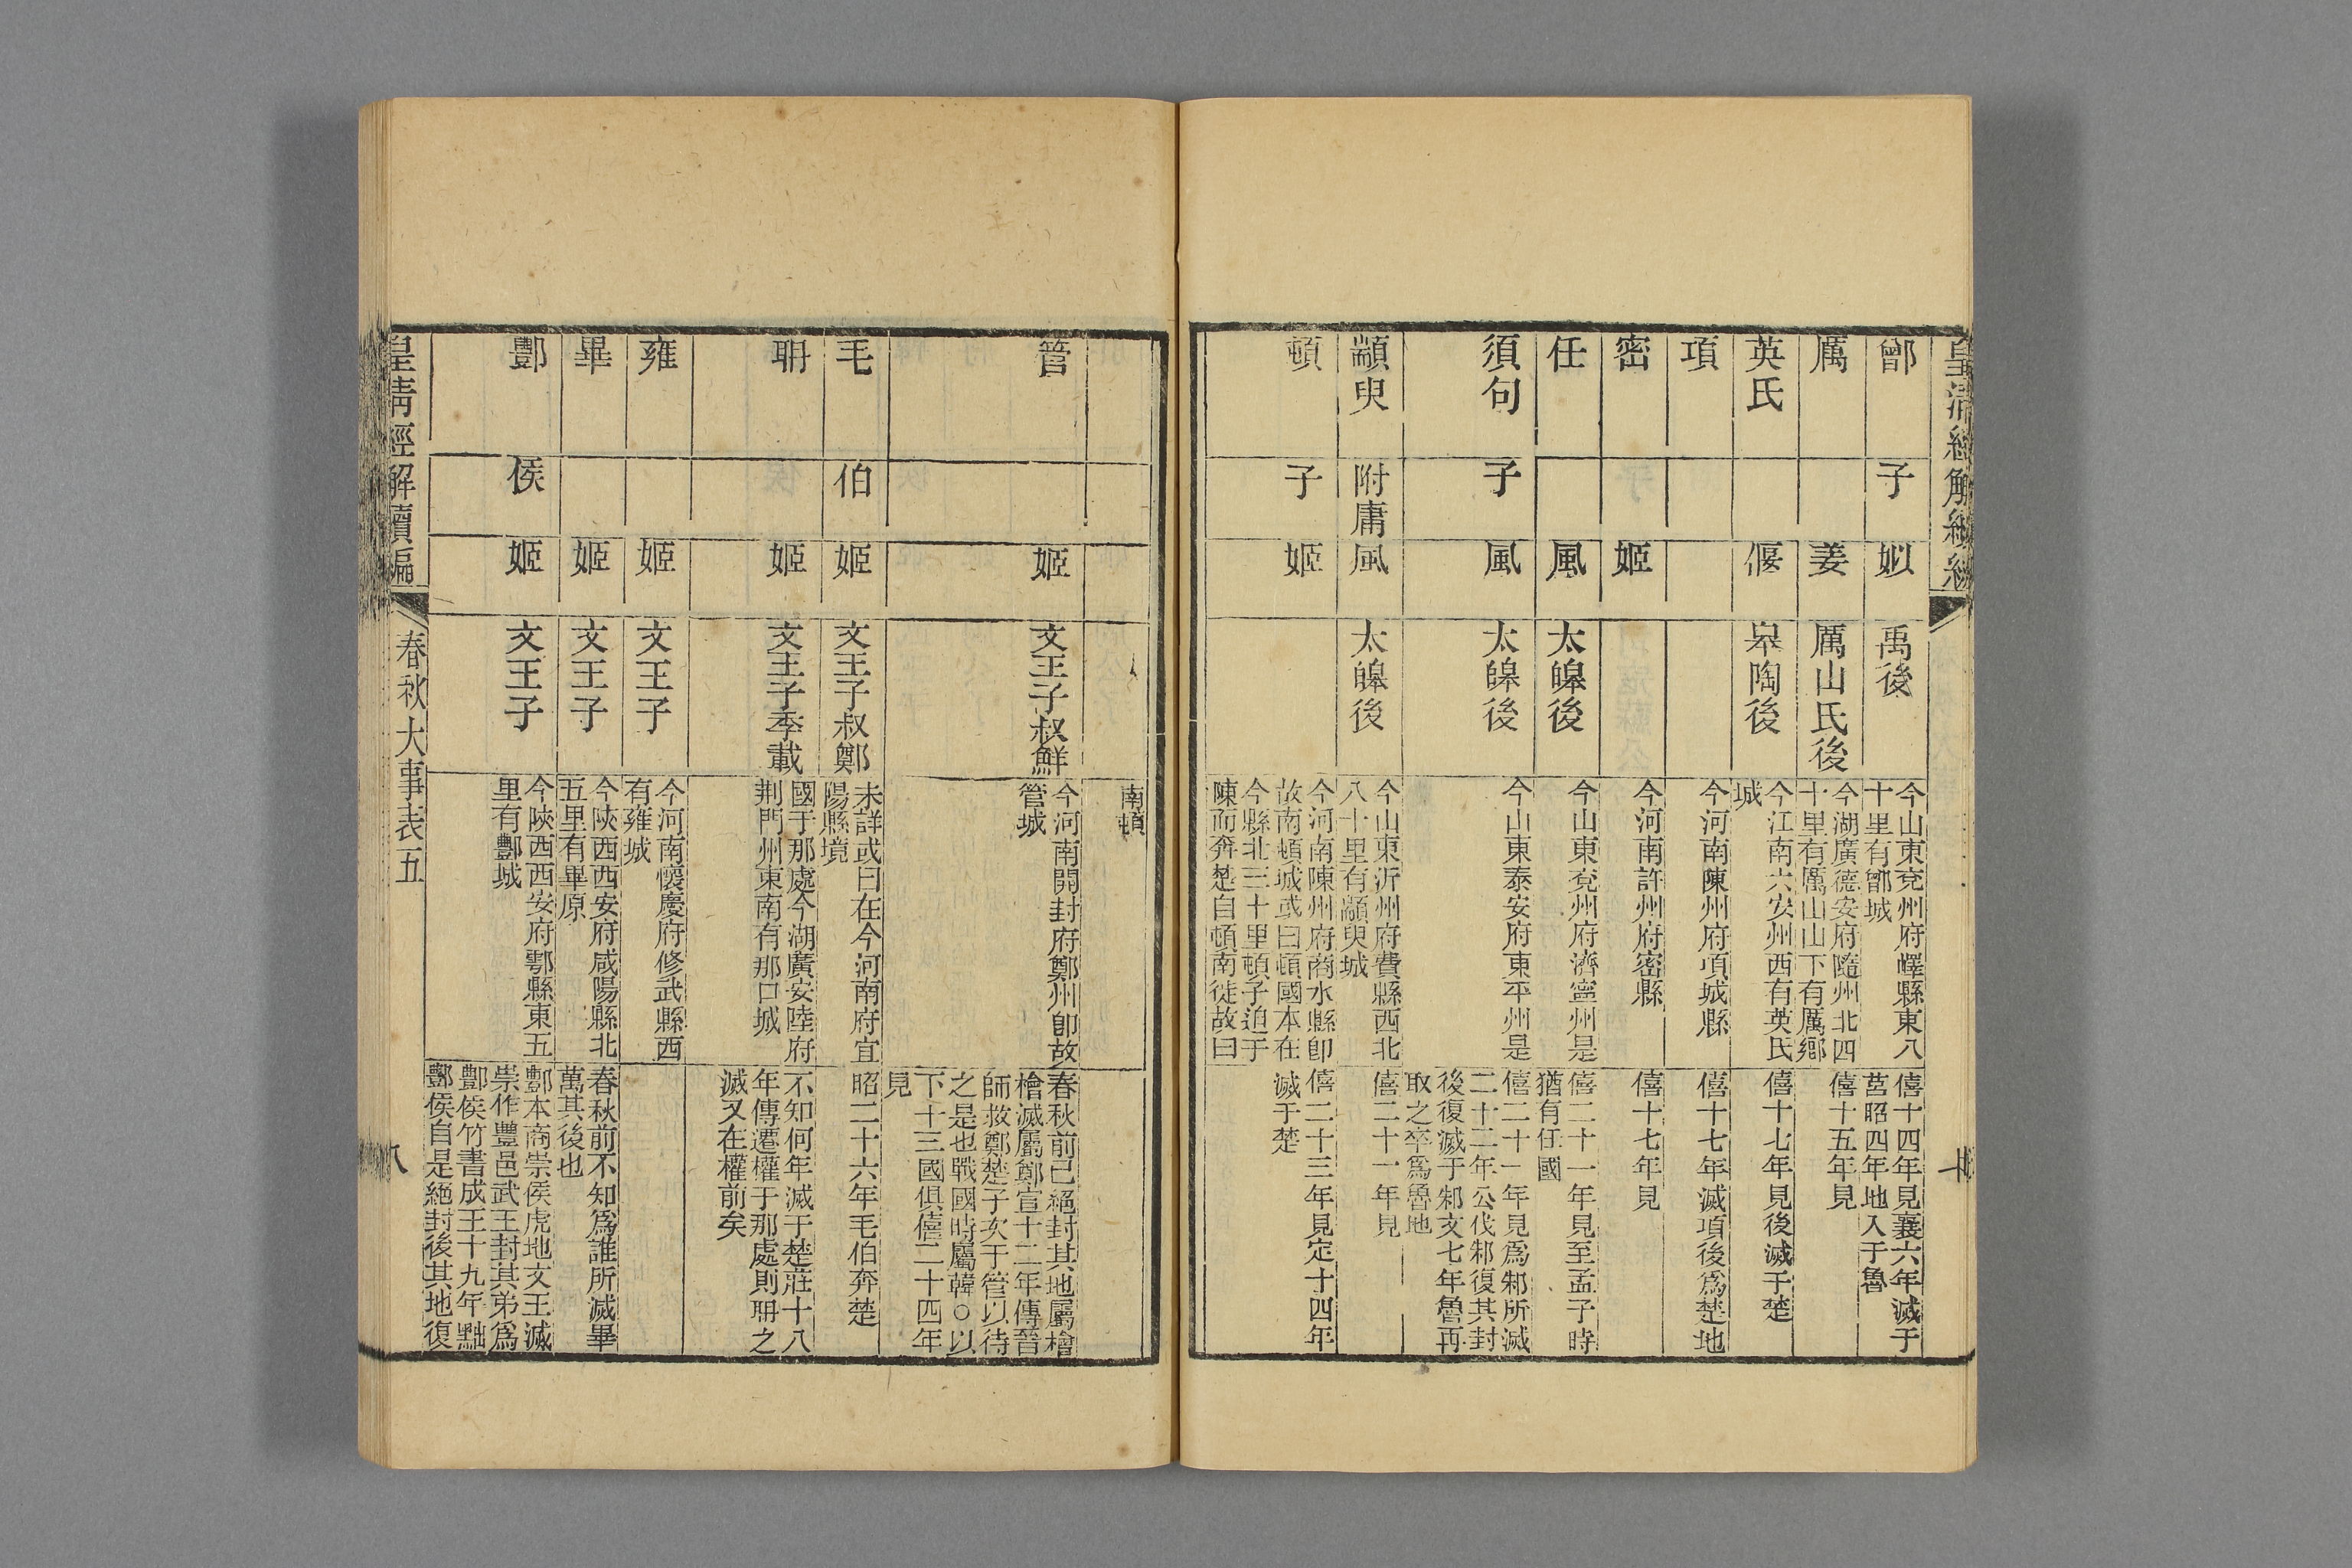 皇清經解續編
鄫
子
姒
禹後
今山東兗州府嶧縣東八
十里有鄫城
僖十四年見襄六年滅于
莒昭四年地入于魯
厲
姜
厲山氏後
今湖廣德安府隨州北四
十里有厲山山下有厲鄉
僖十五年見
英氏
偃
皋陶後
今江南六安州西有英氏
城
僖十七年見後滅于楚
項
今河南陳州府項城縣
僖十七年滅項後爲楚地
密
姬
今河南許州府密縣
僖十七年見
任
風
太皞後
今山東兗州府濟寧州是
僖二十一年見至孟子時
猶有任國
須句
子
風
太皞後
今山東泰安府東平州是
僖二十一年見爲邾所滅
二十二年公伐邾復其封
後復滅于邾文七年魯再
取之卒爲魯地
顓臾
附庸
風
太皞後
今山東沂州府費縣西北
八十里有顓臾城
僖二十一年見
頓
子
姬
今河南陳州府商水縣卽
故南頓城或曰頓國本在
今縣北三十里頓子迫于
陳而奔楚自頓南徙故曰
僖二十三年見定十四年
滅于楚
南頓
管
姬
文王子叔鮮
今河南開封府鄭州卽故
管城
春秋前已絕封其地屬檜
檜滅屬鄭宣十二年傳晉
師救鄭楚子次于管以待
之是也戰國時屬韓○以
下十三國俱僖二十四年
見
毛
伯
姬
文王子叔鄭
未詳或曰在今河南府宜
陽縣境
昭二十六年毛伯奔楚
聃
姬
文王子季載
國于那處今湖廣安陸府
荆門州東南有那口城
不知何年滅于楚莊十八
年傳遷權于那處則聃之
滅又在權前矣
雍
姬
文王子
今河南懷慶府修武縣西
有雍城
畢
姬
文王子
今陝西西安府咸陽縣北
五里有畢原
春秋前不知爲誰所滅畢
萬其後也
酆
侯
姬
文王子
今陝西西安府鄠縣東五
里有酆城
酆本商崇侯虎地文王滅
崇作豐邑武王封其弟爲
酆侯竹書成王十九年黜
酆侯自是絕封後其地復
皇清經解續編
春秋大事表五
八